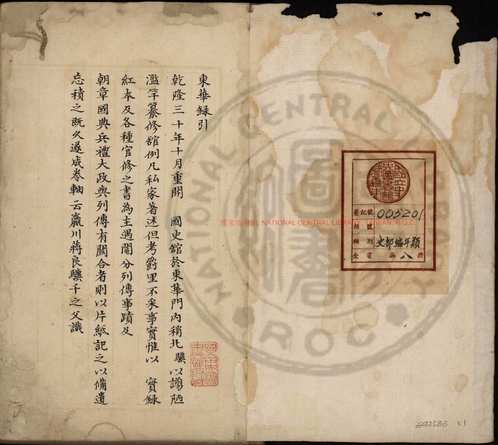 東華錄引
乾隆三十年十月重開　國史館於東華門內稍北驥以謭陋
濫竽纂修館例凡私家著述但考爵里不采事實惟以　實錄
紅本及各種官修之書為主遇閣分列傳事蹟及
朝章國典兵禮大政與列傳有關合者則以片紙記之以備遺
忘積之既久遂成卷軸云瀛川蔣良驥千之父識
005201
史部編年類
八
NATIONAL CENTRAL LIBRARY
ROC